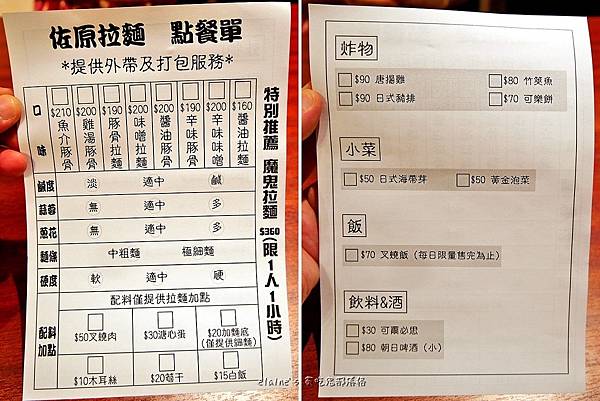 佐原拉麵 點餐單
*提供外帶及打包服務*
口味
$210 魚介豚骨
$200 雞湯豚骨
$190 豚骨拉麵
$200 味噌拉麵
$200 醬油豚骨
$190 辛味豚骨
$200 辛味味噌
$160 醬油拉麵
鹹度 淡 適中 鹹
蒜蓉 無 適中 多
蔥花 無 適中 多
麵條 中粗麵 極細麵
硬度 軟 適中 硬
配料僅提供拉麵加點
配料加點
$50叉燒肉 $30溏心蛋 $20加麵底
(僅提供細麵)
$10木耳絲 $20筍干 $15白飯
特別推薦 魔鬼拉麵 $360(限1人1小時)
炸物
$90 唐揚雞 $80 竹筴魚
$90 日式豬排 $70 可樂餅
小菜
$50 日式海帶芽 $50 黃金泡菜
飯
$70 叉燒飯(每日限量售完為止)
飲料&酒
$30 可爾必思
$80 朝日啤酒(小)
elaine's 貪吃鬼部落格